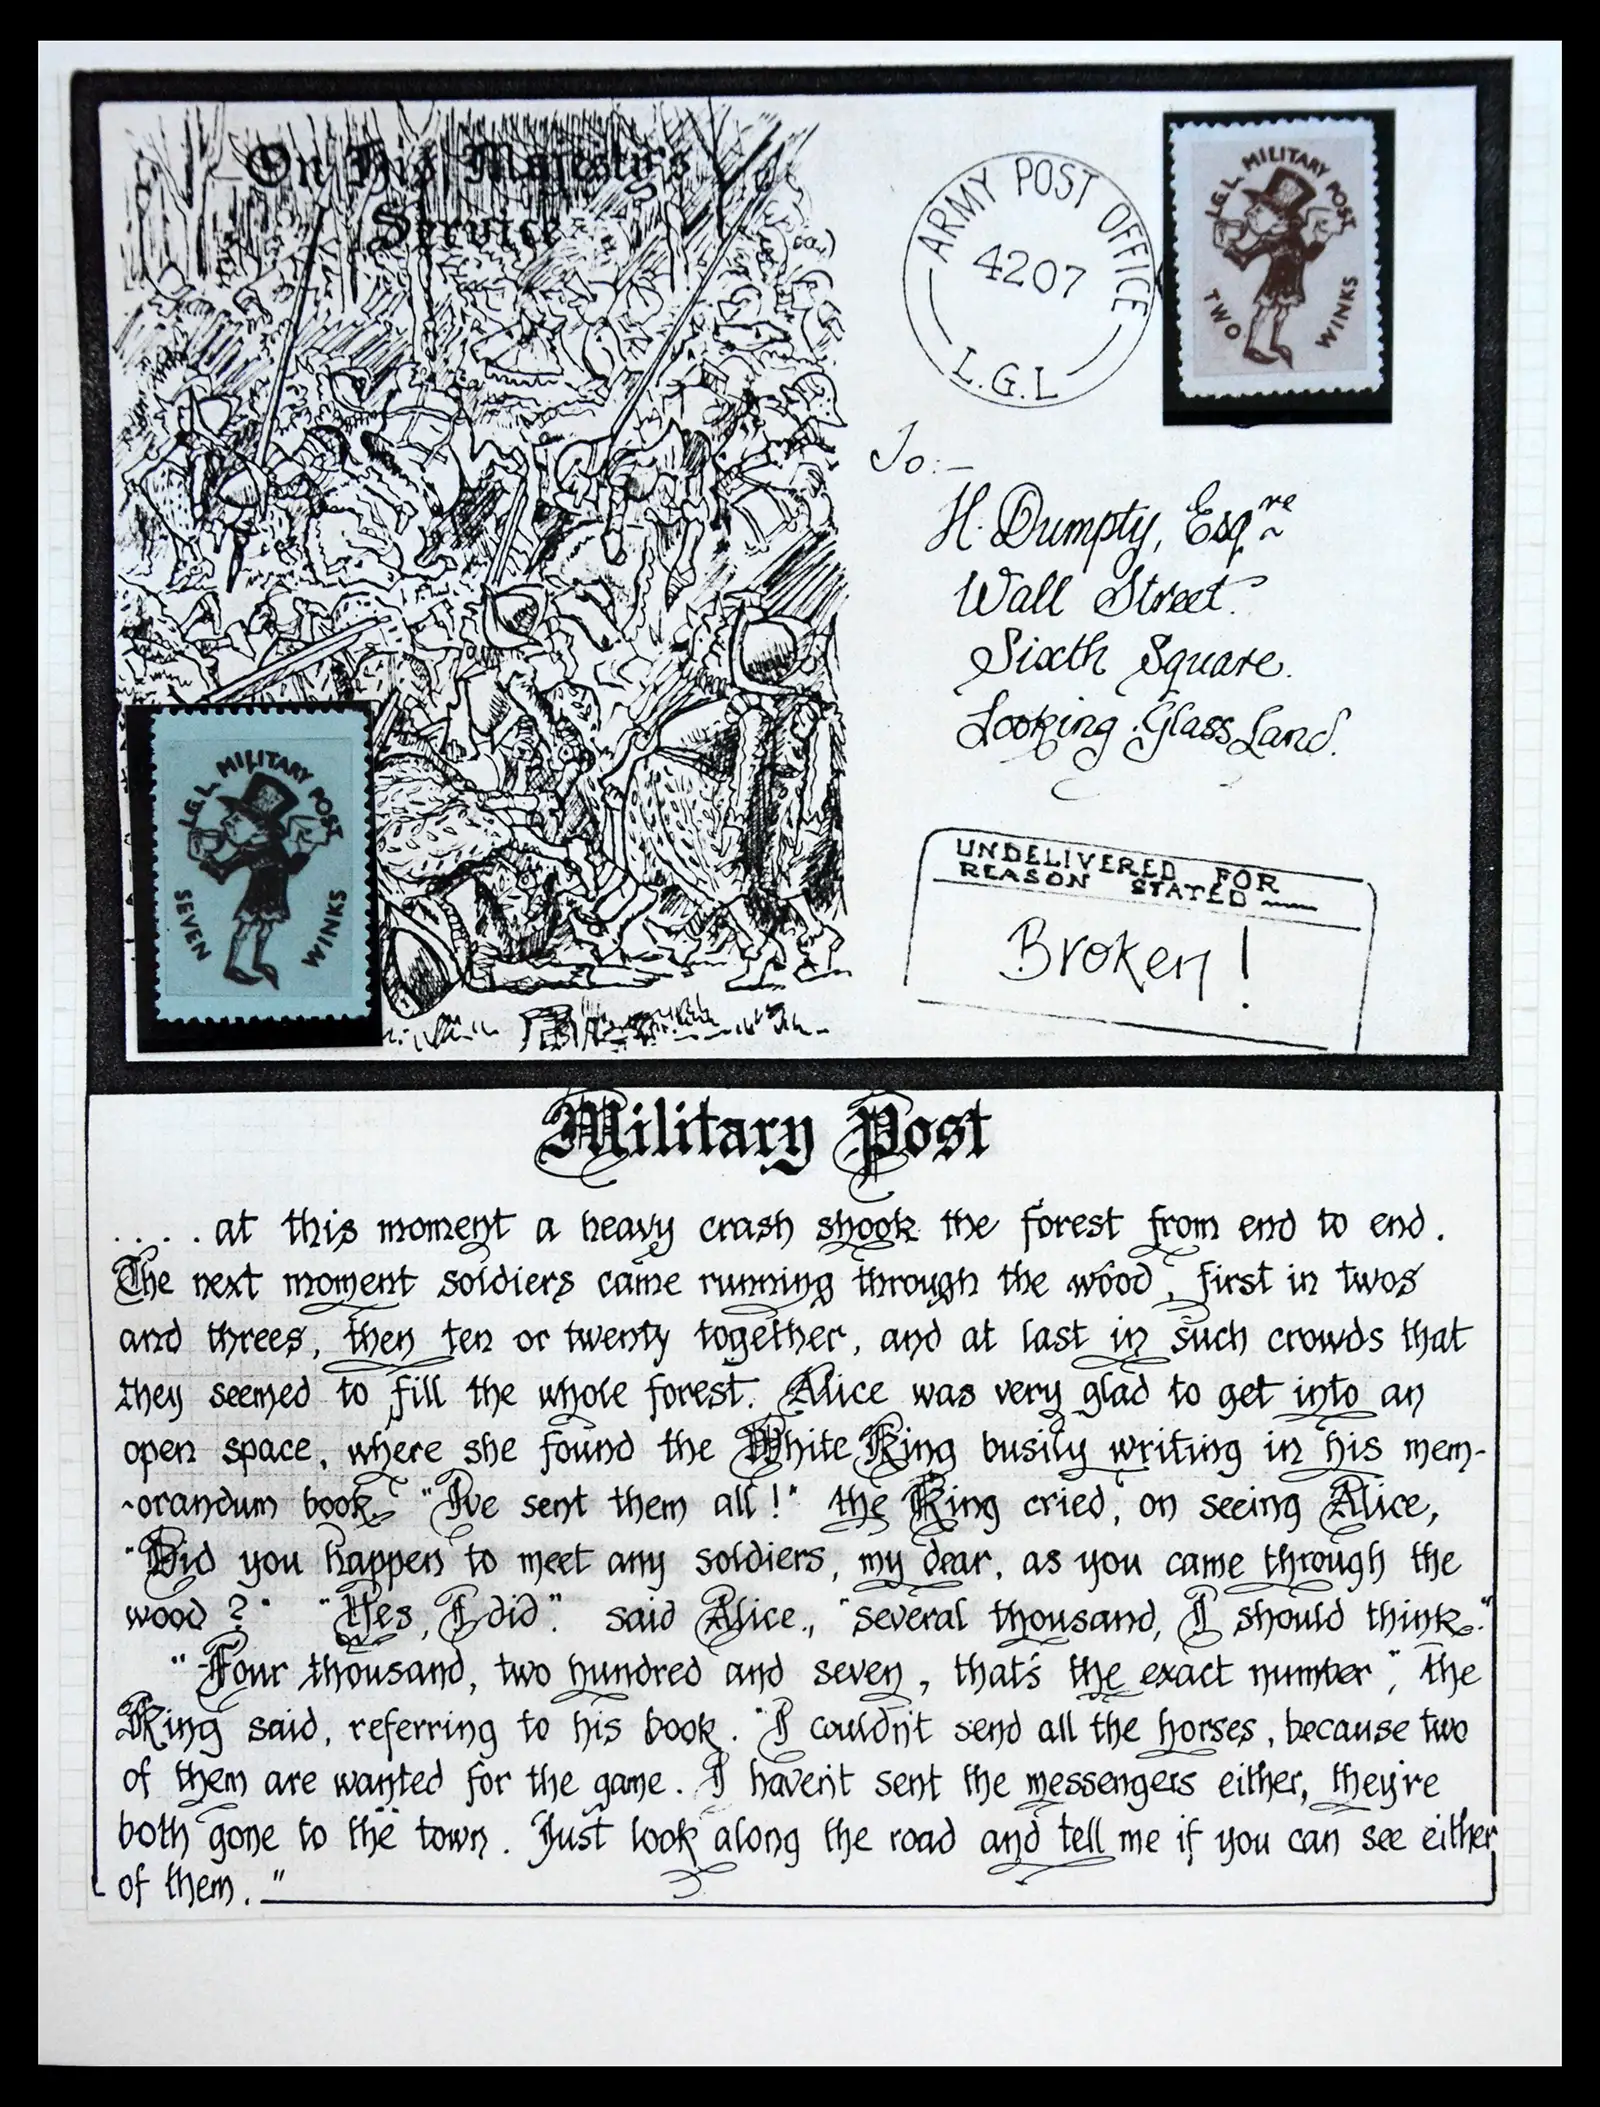 On His Majesty's
Service
ARMY POST OFFICE
4207
L.G.L
L.G.L. MILITARY POST
TWO WINKS
To:-
H. Dumpty, Esqre
Wall Street.
Sixth Square.
Looking Glass Land.
L.G.L. MILITARY POST
SEVEN WINKS
UNDELIVERED FOR
REASON STATED
Broken!
Military Post
. . . . at this moment a heavy crash shook the forest from end to end.
The next moment soldiers came running through the wood, first in twos
and threes, then ten or twenty together, and at last in such crowds that
they seemed to fill the whole forest. Alice was very glad to get into an
open space, where she found the White King busily writing in his mem-
-orandum book. "I've sent them all!" the King cried, on seeing Alice,
"Did you happen to meet any soldiers, my dear, as you came through the
wood?" "Yes, I did". said Alice., "several thousand, I should think."
"Four thousand, two hundred and seven, that's the exact number", the
King said, referring to his book. "I couldn't send all the horses, because two
of them are wanted for the game. I haven't sent the messengers either, they're
both gone to the town. Just look along the road and tell me if you can see either
of them."